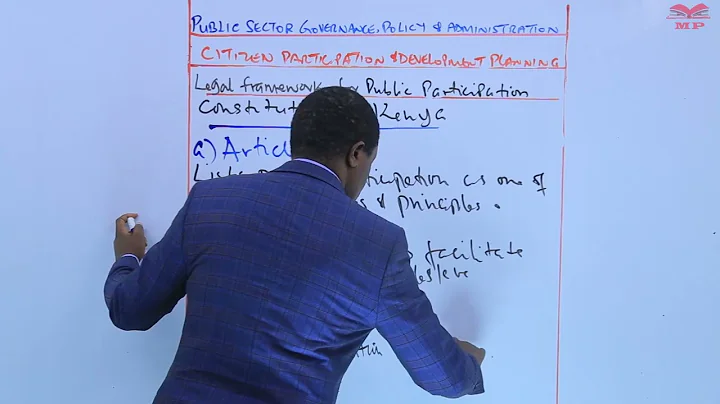 PUBLIC SECTOR GOVERNANCE, POLICY & ADMINISTRATION
MP
CITIZEN PARTICIPATION & DEVELOPMENT PLANNING
Legal framework for Public Participation
Constitut Kenya
a) Artic
Lists ticipation as one of
s & principles.
facilitate